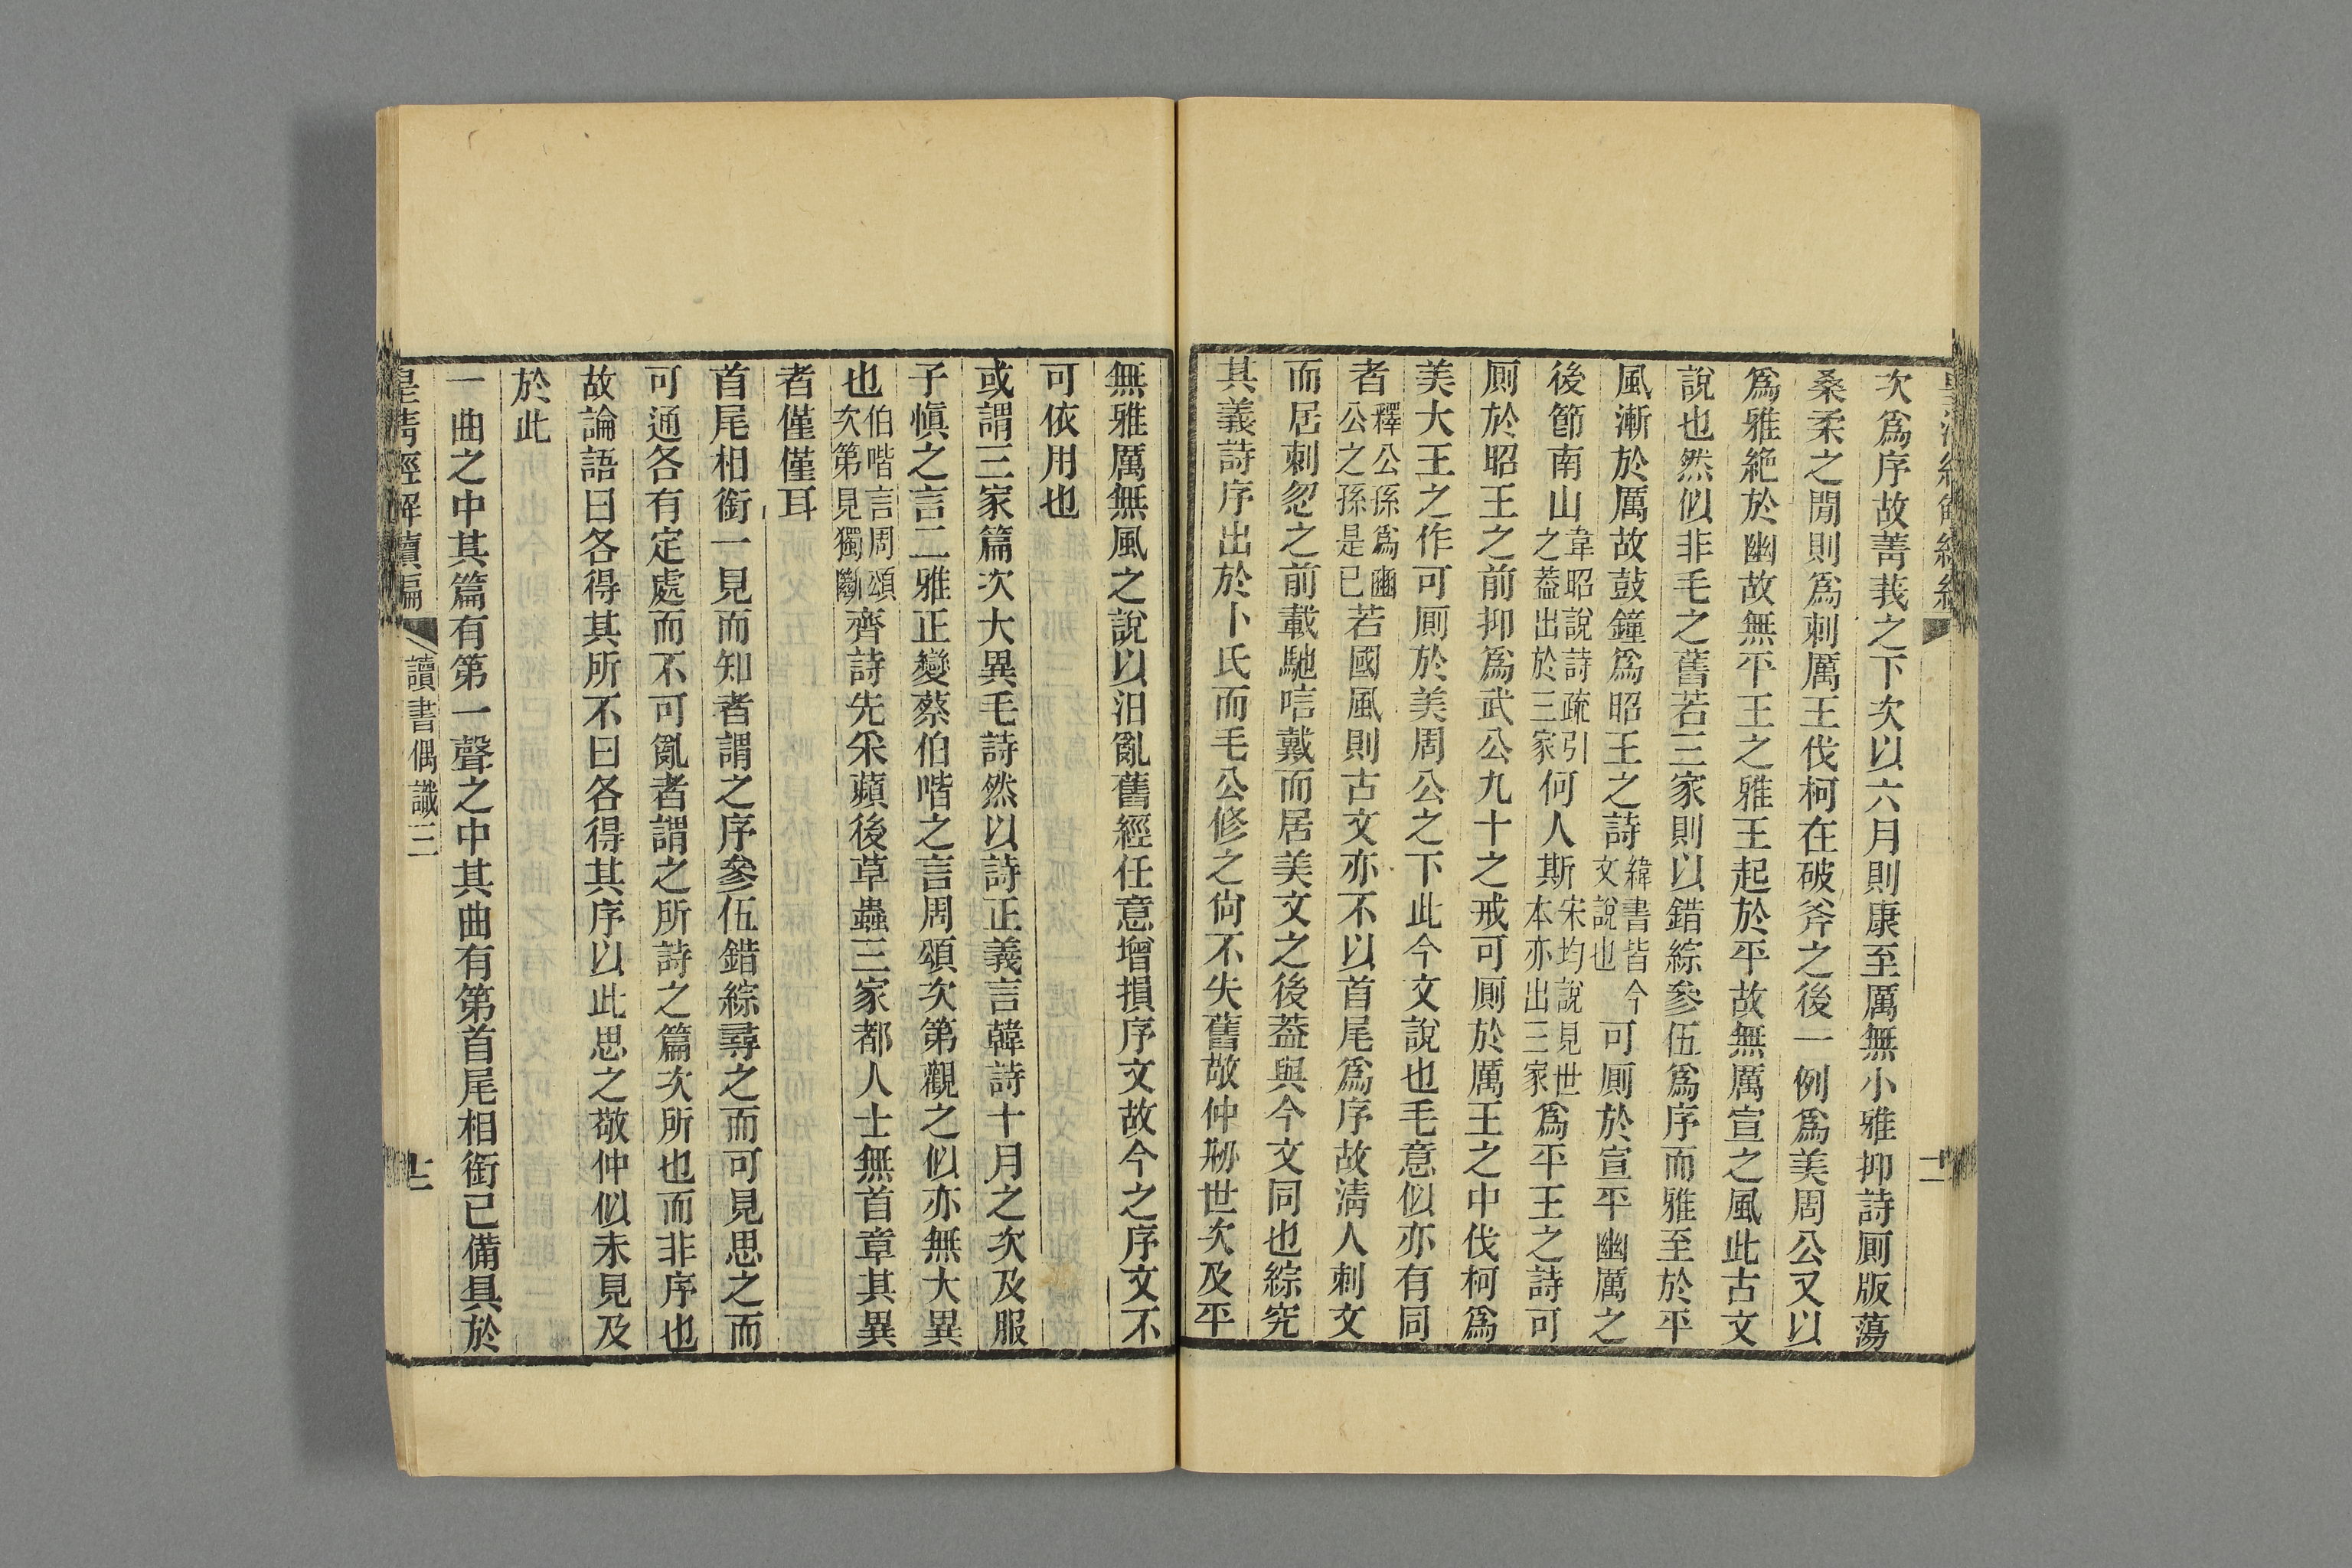 次爲序故菁莪之下次以六月則康至厲無小雅抑詩厠版蕩
桑柔之閒則爲刺厲王伐柯在破斧之後一例爲美周公又以
爲雅絶於幽故無平王之雅王起於平故無厲宣之風此古文
說也然似非毛之舊若三家則以錯綜參伍爲序而雅至於平
風漸於厲故鼓鐘爲昭王之詩緯書皆今文說也可厠於宣平幽厲之
後節南山韋昭說詩疏引之葢出於三家何人斯宋均說見世本亦出三家爲平王之詩可
厠於昭王之前抑爲武公九十之戒可厠於厲王之中伐柯爲
美大王之作可厠於美周公之下此今文說也毛意似亦有同
者釋公孫爲豳公之孫是已若國風則古文亦不以首尾爲序故淸人刺文
而居刺忽之前載馳唁戴而居美文之後葢與今文同也綜究
其義詩序出於卜氏而毛公修之尙不失舊敬仲剙世次及平
無雅厲無風之說以汨亂舊經任意增損序文故今之序文不
可依用也
或謂三家篇次大異毛詩然以詩正義言韓詩十月之次及服
子愼之言二雅正變蔡伯喈之言周頌次第觀之似亦無大異
也伯喈言周頌次第見獨斷齊詩先采蘋後草蟲三家都人士無首章其異
者僅僅耳
首尾相銜一見而知者謂之序參伍錯綜尋之而可見思之而
可通各有定處而不可亂者謂之所詩之篇次所也而非序也
故論語曰各得其所不曰各得其序以此思之敬仲似未見及
於此
一曲之中其篇有第一聲之中其曲有第首尾相銜已備具於
皇淸經解續編
讀書偶識三
十二